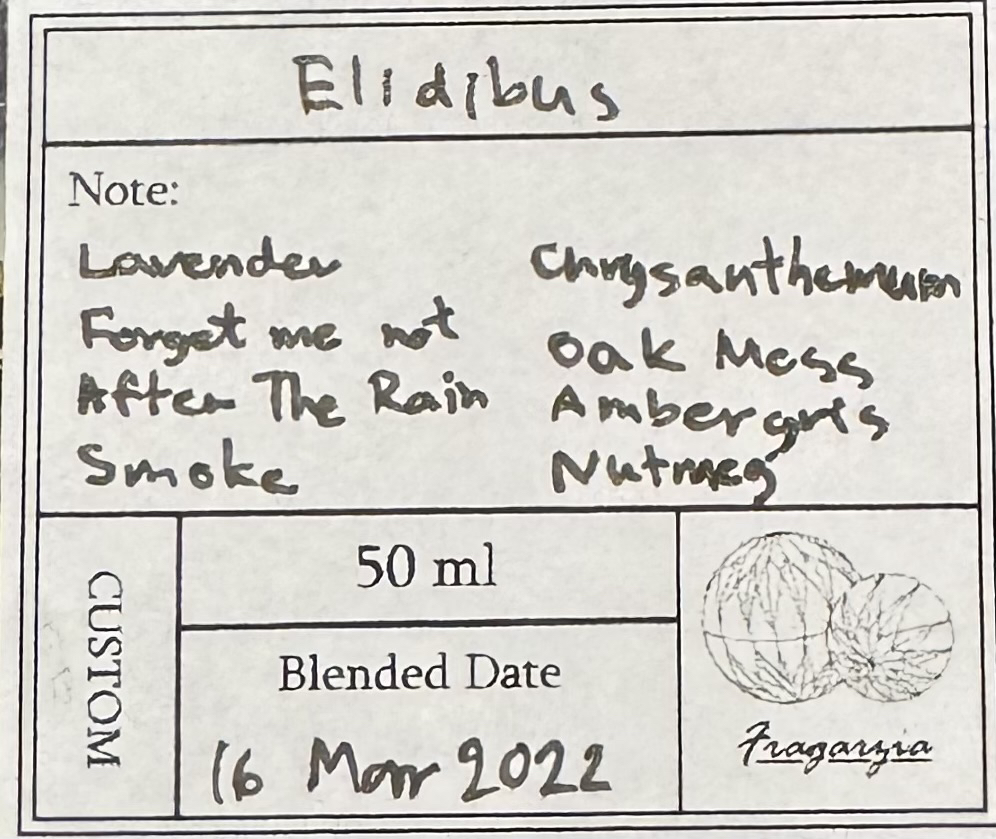 Elidibus
Note:
Lavender
Forget me not
After The Rain
Smoke
Chrysanthemum
Oak Moss
Ambergris
Nutmeg
CUSTOM
50 ml
Blended Date
16 Mar 2022
Fragarzia